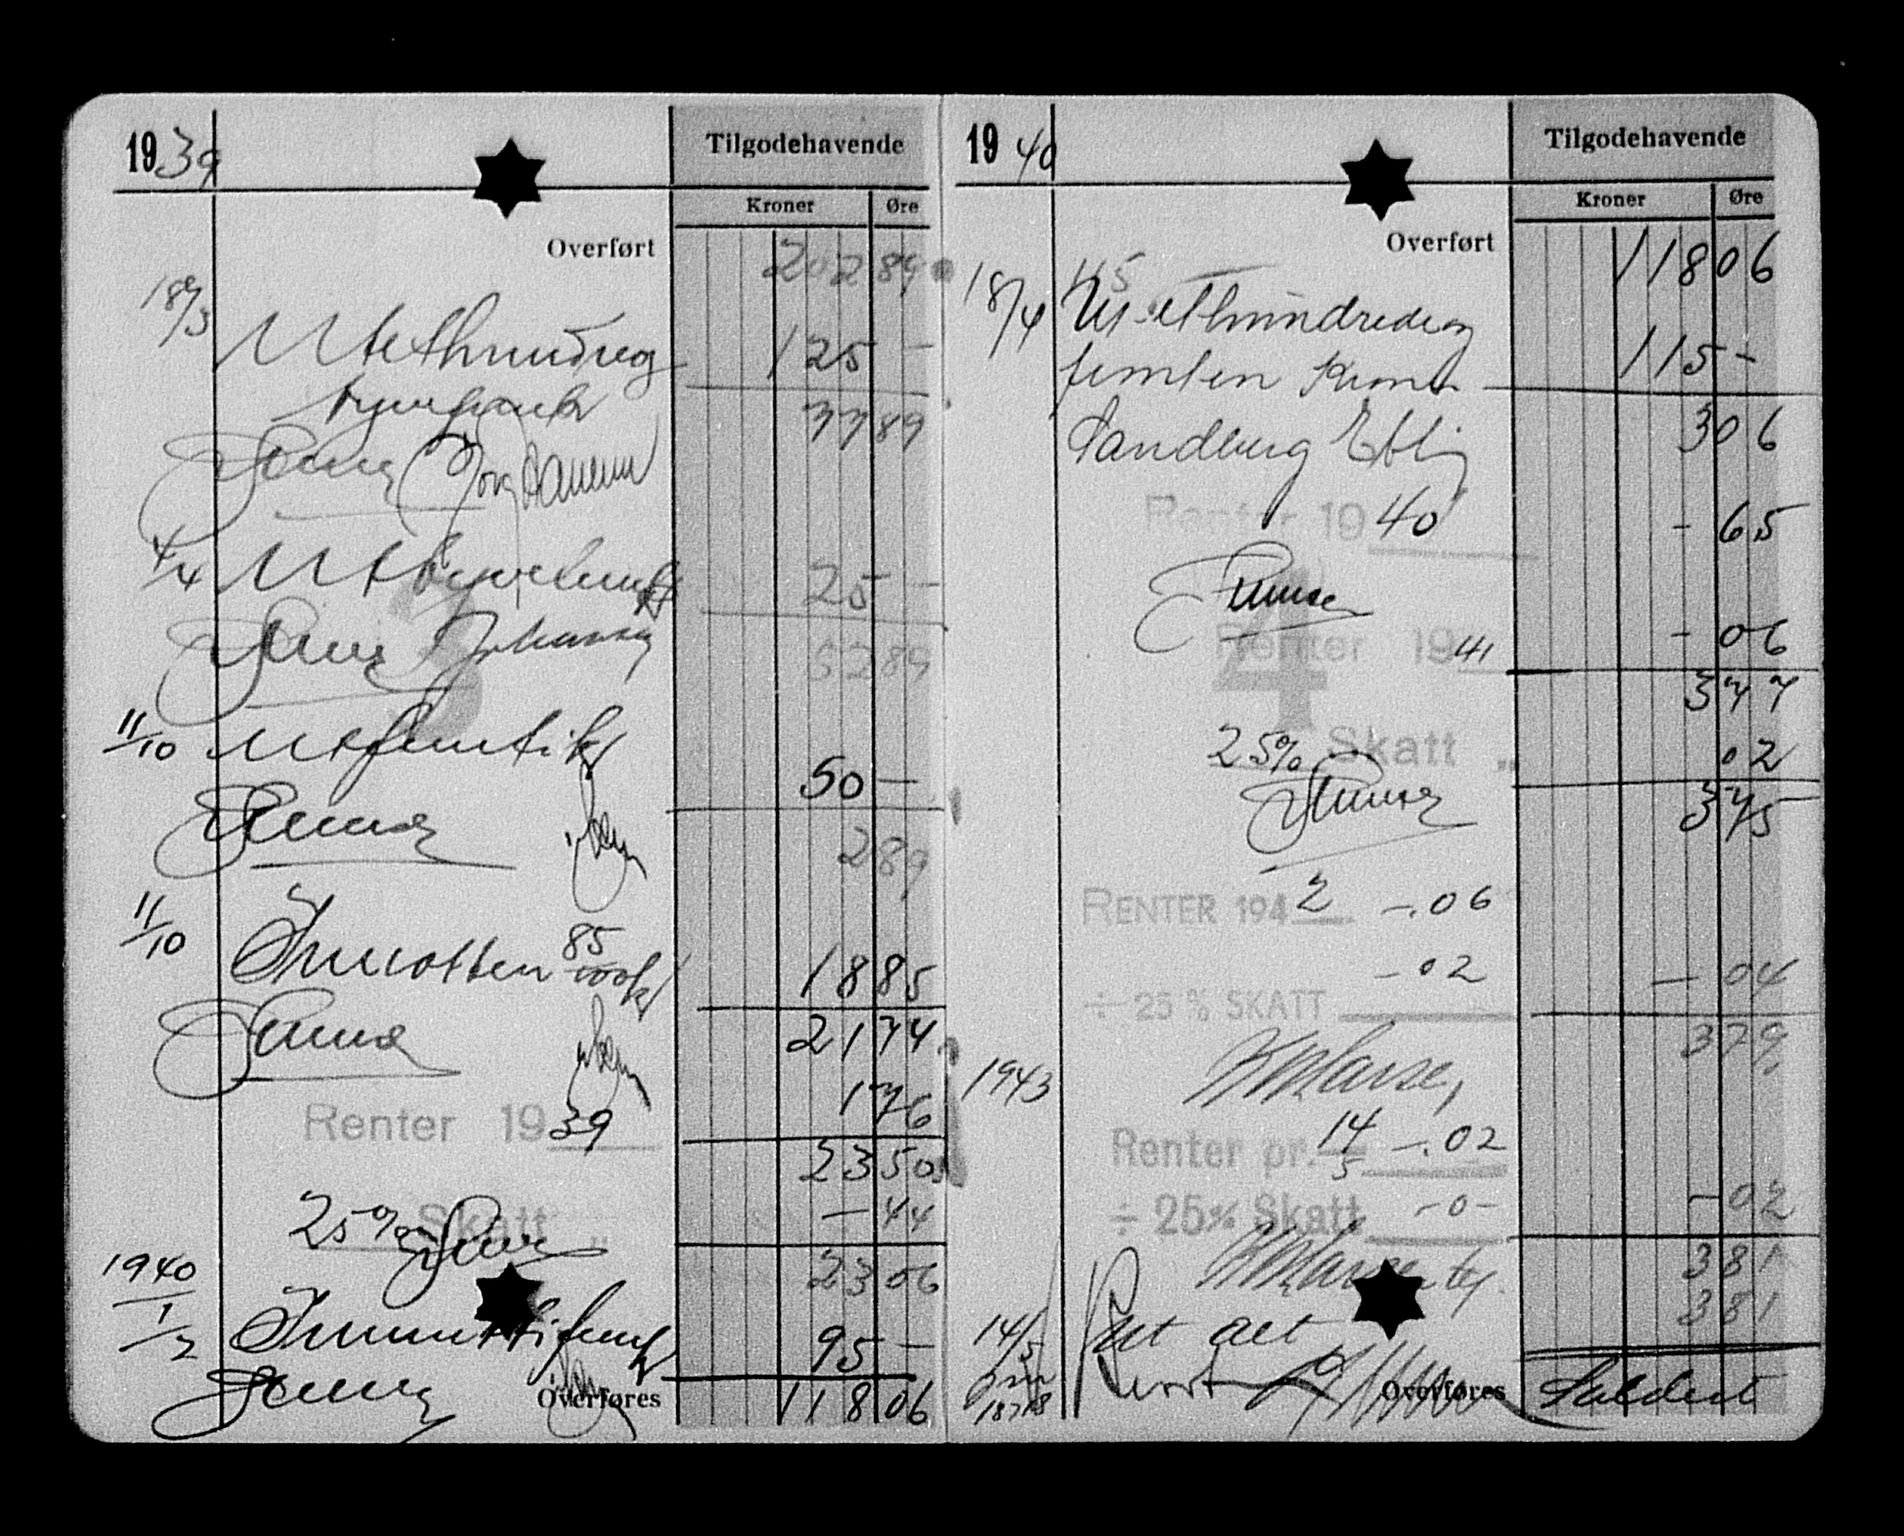 1939
Tilgodehavende
Kroner Øre
Overført 202 89
18/3 Ut ethundreog 125 —
tyvefemkr 77 89
1/4 Ut tyvefemkr 25 —
52 89
3
11/10 Ut femtikr 50 —
2 89
11/10 Inn atten 85/100 kr 18 85
21 74
Renter 1939 1 76
23 50
25% Skatt „ — 44
23 06
1940
1/2 Inn nittifemkr 95 —
Overføres 118 06
1940
Tilgodehavende
Kroner Øre
Overført 118 06
18/4 Ut ethundredeog 115 —
femten Kroner
Sandberg 3 06
Renter 1940 - 65
Renter 1941 - 06
4
3 77
25% Skatt „ 02
3 75
RENTER 1942 —.06
÷ 25 % SKATT -02 — 04
3 79
1943
Renter pr. 14/5 —.02
÷ 25% Skatt -0- - 02
3 81
14/5 Ut alt 3 81
Overføres Saldert